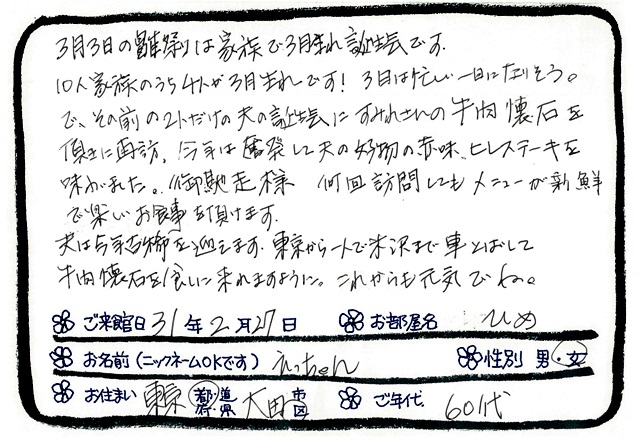 3月3日の雛祭りは家族で3月生れ誕生会です.
10人家族のうち4人が3月生れです! 3日は忙しい一日になりそう。
で、その前の2人だけの夫の誕生会にすみれさんの牛肉懐石を
頂きに再訪. 今年は奮発して夫の好物の赤味、ヒレステーキを
味わえた。御馳走様 何回訪問してもメニューが新鮮
で楽しいお食事を頂けます.
夫は今年古稀を迎えます. 東京から一人で米沢まで車とばして
牛肉懐石を食いに来れますように。これからも元気でね。
ご来館日 31年2月27日 お部屋名 ひめ
お名前(ニックネームOKです) えっちゃん 性別 男・女
お住まい 東京 都道府県 大田 市区 ご年代. 60代